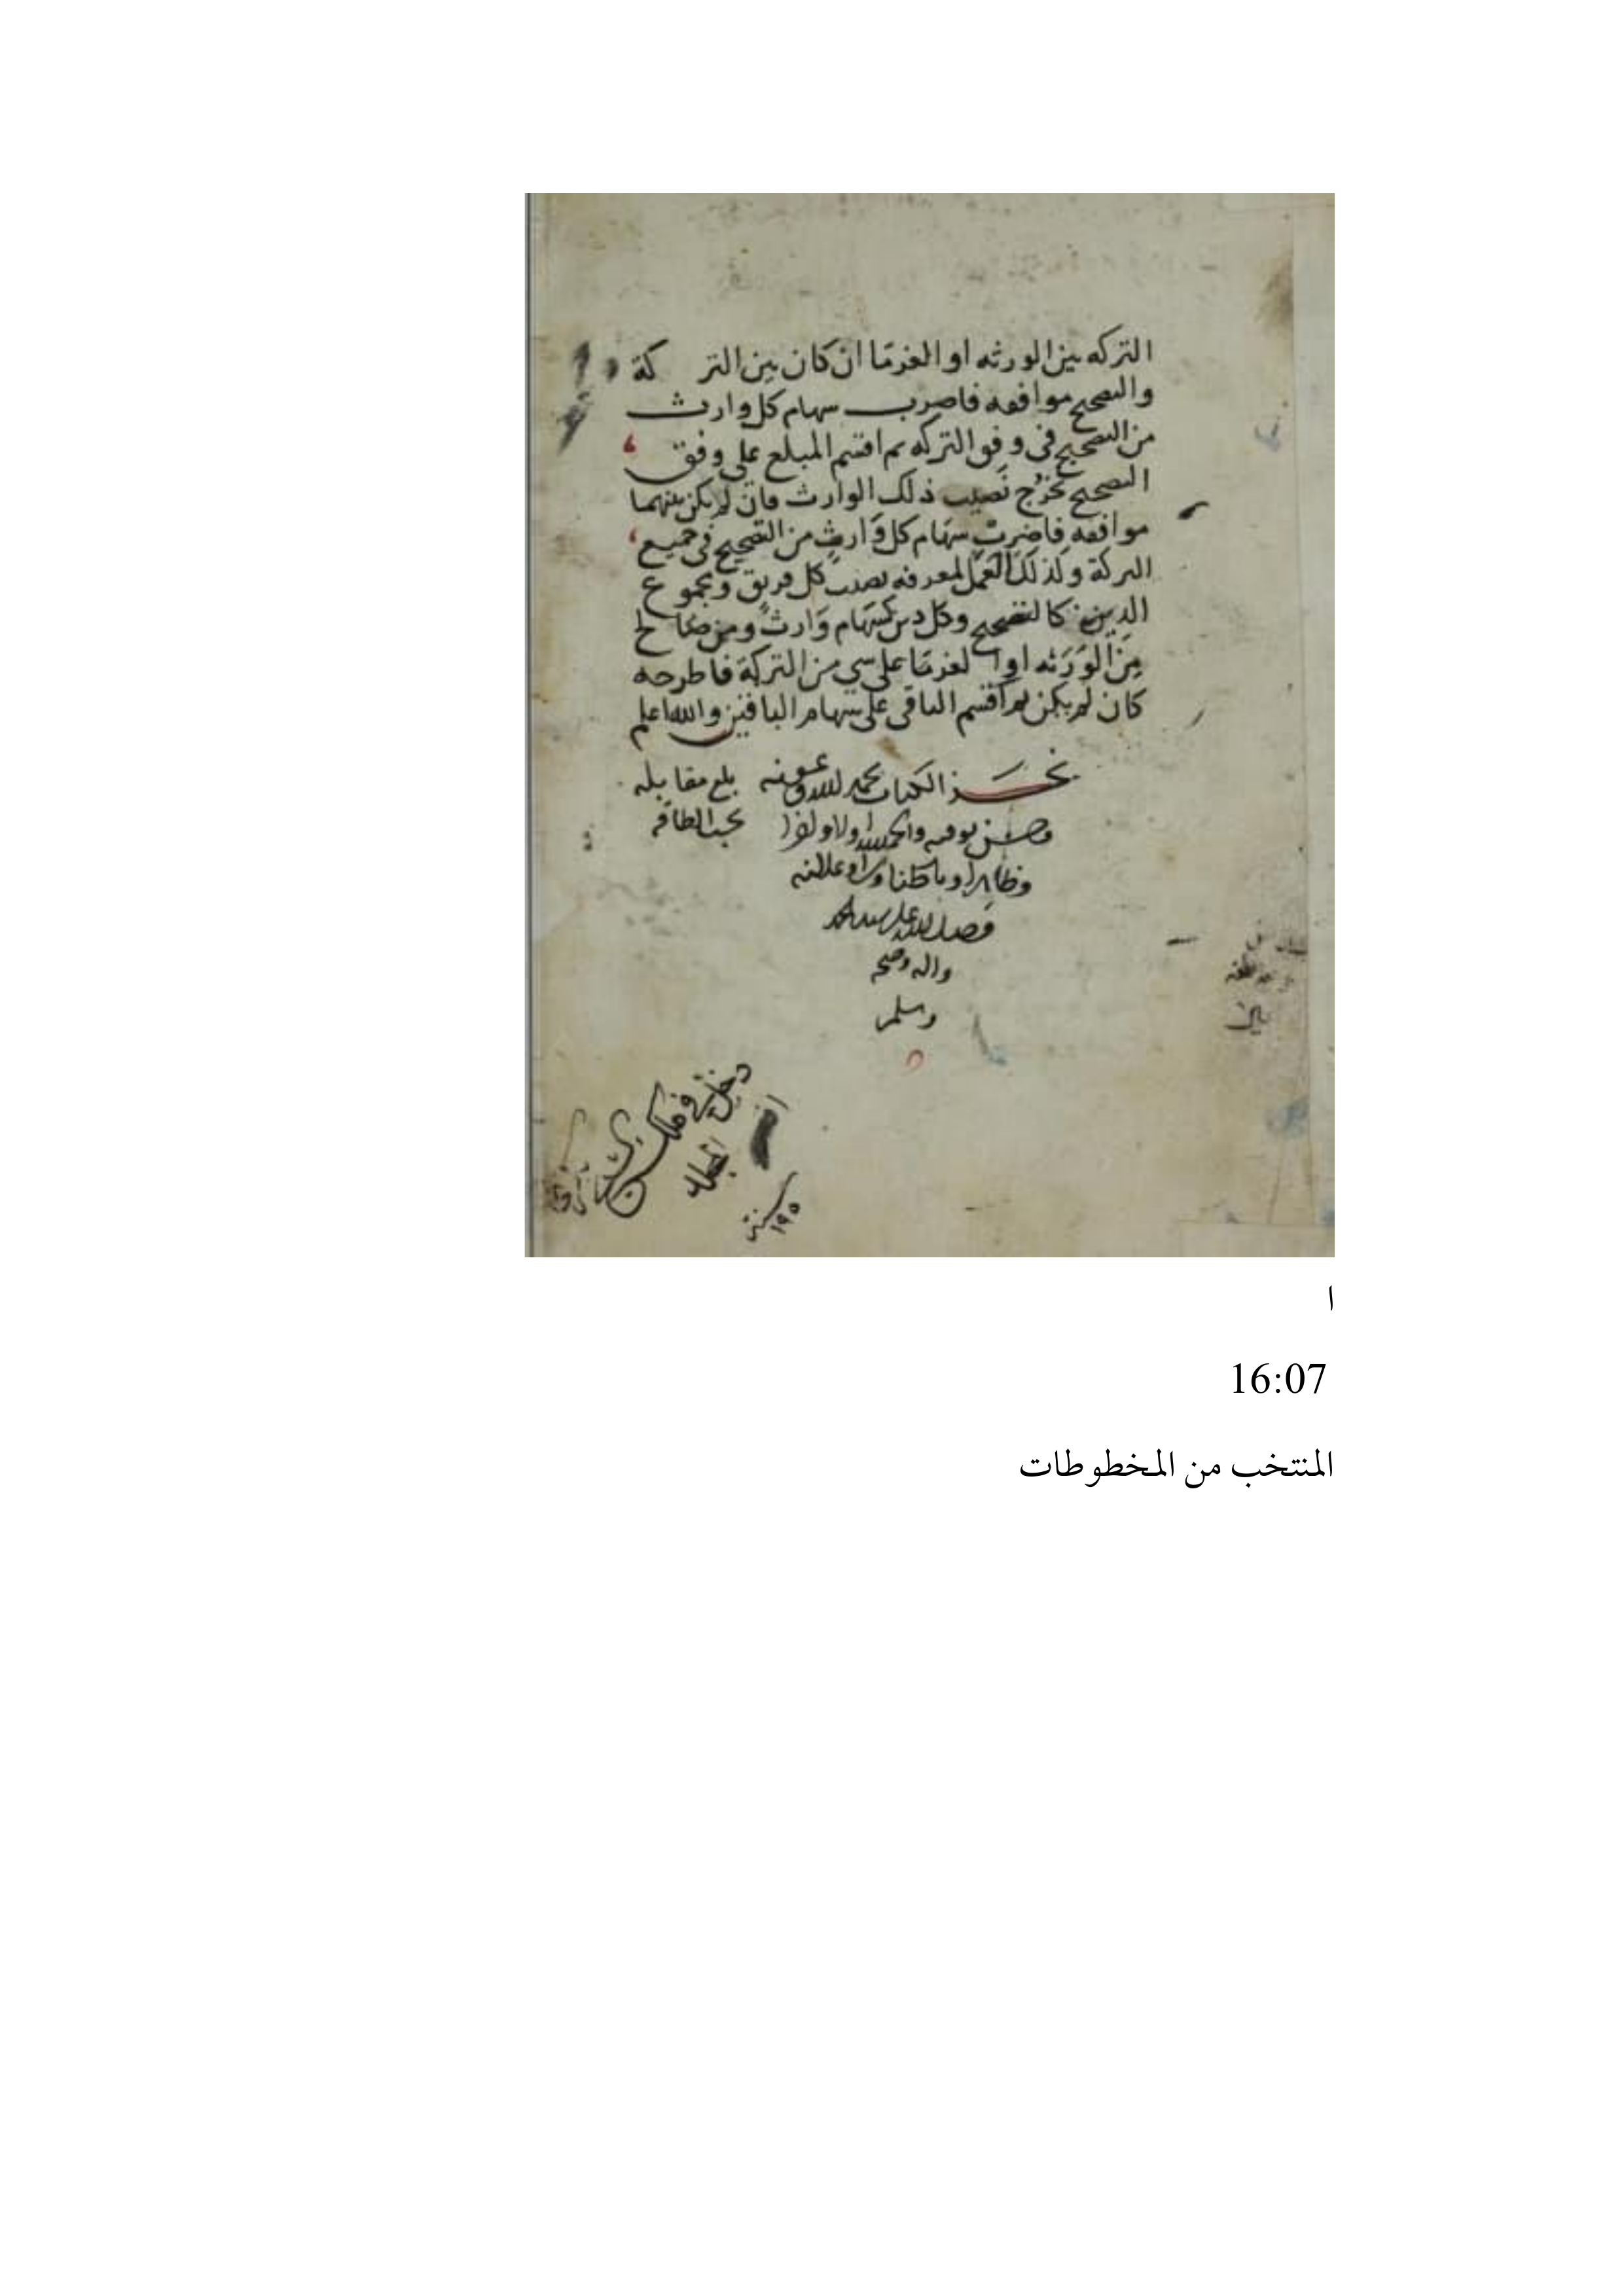 التركه بين الورثه او الغرما ان كان بين التركة
والتصحيح موافقه فاضرب سهام كل وارث
من التصحيح في وفق التركه ثم اقسم المبلغ على وفق
التصحيح يخرج نصيب ذلك الوارث فان لم يكن بينهما
موافقه فاضرب سهام كل وارث من التصحيح في جميع
التركة وكذلك العمل لمعرفه نصيب كل فريق ومجموع
الديون كالتصحيح وكل دين كسهام وارث ومن صالح
من الورثه او الغرما على شي من التركة فاطرحه
كان لم يكن ثم اقسم الباقي على سهام الباقين والله اعلم
نجز الكتاب بحمد الله وعونه
بلغ مقابله
وحسن توفيقه والحمد لله اولا واخرا
بحسب الطاقه
وظاهرا وباطنا وسرا وعلانيه
وصلى الله على سيدنا محمد
واله وصحبه
وسلم
دخل في ملك
سنة
ا
16:07
المنتخب من المخطوطات